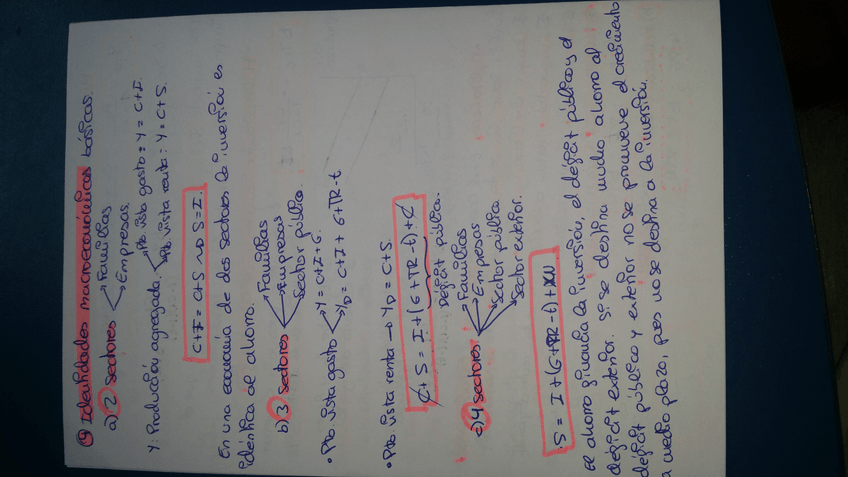 ④ Identidades macroeconómicas básicas.
a) 2 sectores
Familias
Empresas.
Y: Producción agregada.
Pto vista gasto: Y = C+I.
Pto vista renta: Y = C+S.
C+I = C+S → S=I.
En una economía de dos sectores la inversión es
idéntica al ahorro.
b) 3 sectores
Familias
Empresas
Sector público.
• Pto vista gasto
Y = C+I+G.
YD = C+I+G+TR-t
• Pto vista renta → YD = C+S.
C+S = I+(G+TR-t)+C
Déficit público.
c) 4 sectores
Familias
Empresas
Sector público
Sector exterior.
S = I+(G+TR-t)+XN
El ahorro financia la inversión, el déficit público y el
déficit exterior. Si se destina mucho ahorro al
déficit público y exterior no se promueve el crecimiento
a medio plazo, pues no se destina a la inversión.